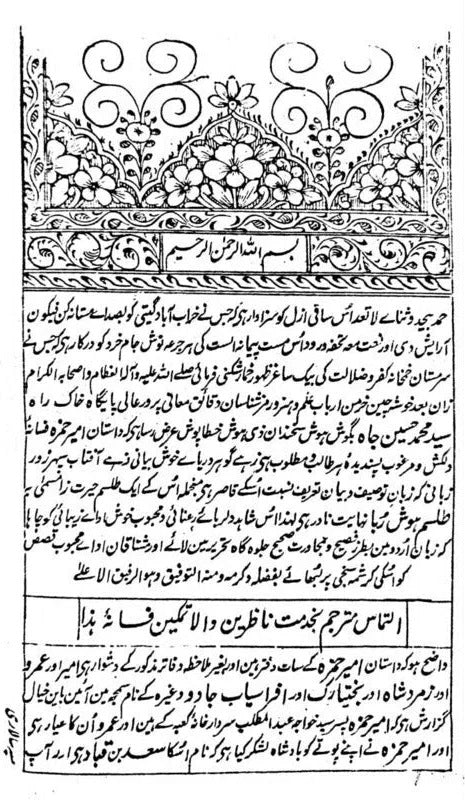 بسم اللہ الرحمٰن الرحیم
حمد بیحد و ثناے لا تعد اس ساقی ازل کو سزاوار ہی کہ جس نے خراب آباد گیتی کو بصداے مستانہ کن فیکون
آرایش دی اور نعت معہ تحفہ درود اس مست پیمانہ الست کی ہر جرعہ نوش جام خرد کو درکار ہی کہ جس نے
سرمستان خمخانہ کفر و ضلالت کی بیک ساغر ظہور خمار شکنی فرمائی صلے اللہ علیہ و آلہ العظام و اصحابہ الکرام
زان بعد خوشہ چین خرمن ارباب علم و ہنر و رمز شناسان دقائق معانی پرور عالی پایگاہ خاک راہ
سید محمد حسین جاہ بگوش ہوش سخندان ذی ہوش خطا پوش عرض رسا ہی کہ داستان امیر حمزہ فسانۂ
دلکش و مرغوب پسندیدہ ہر طالب و مطلوب ہی زہے گوہر دریاے خوش بیانی زہے آفتاب سپہر زور
زبانی کہ زبان توصیف و بیان تعریف نسبت اسکے قاصر ہی منجملہ اس کے ایک طلسم حیرت
طلسم ہوش ربا نہایت نادر ہی لہذا اس شاہد دلرباے رعنائی و محبوب خوش اداے زیبائی کو چاہا
کہ زبان اردو مین بطرز فصیح و بمحاورت صحیح جلوہ گاہ تحریر مین لائے اور مشتاقان اداے محبوب قصص
کو اسکی کرشمہ سنجی پر لبھائے بفضلہ و کرمہ و منہ التوفیق و ہو الرفیق الاعلے
التماس مترجم بخدمت ناظرین والا تمکین فسانۂ ہذا
واضح ہو کہ داستان امیر حمزہ کے سات دفتر ہین اور بغیر ملاحظہ دفاتر مذکور کے دشوار ہی امیر اور عمرو
اور زمرد شاہ اور بختیارک اور افراسیاب جادو وغیرہ کے نام سمجھ مین آئین باین خیال
گزارش ہی کہ امیر حمزہ پسر سید خواجہ عبد المطلب سردار خانۂ کعبہ کے ہین اور عمرو اُن کا عیار ہی
اور امیر حمزہ نے اپنے پوتے کو بادشاہ لشکر کیا ہی کہ نام اُسکا سعد بن قباد ہی اور آپ